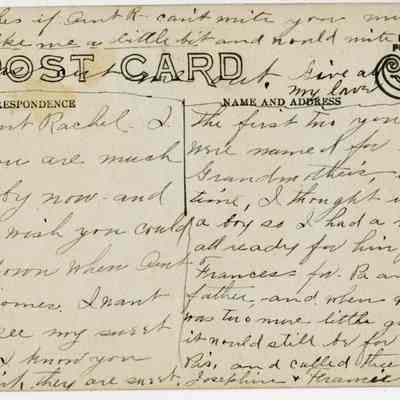 if Aunt R- can't write you
like me a little bit and would write
POST CARD
cut me out. Give all
my love
RESPONDENCE
NAME AND ADDRESS
Aunt Rachel. I
you are much
by now - and
wish you could
down when Aunt
comes. I want
see my sweet
I know you
they are sweet.
The first two
were named for
Grandmothers,
time, I thought
a boy so I had a
all ready for him
Frances for Pa an
father, and when
was two more little
it would still be for
and called thee
Josephine & Francis